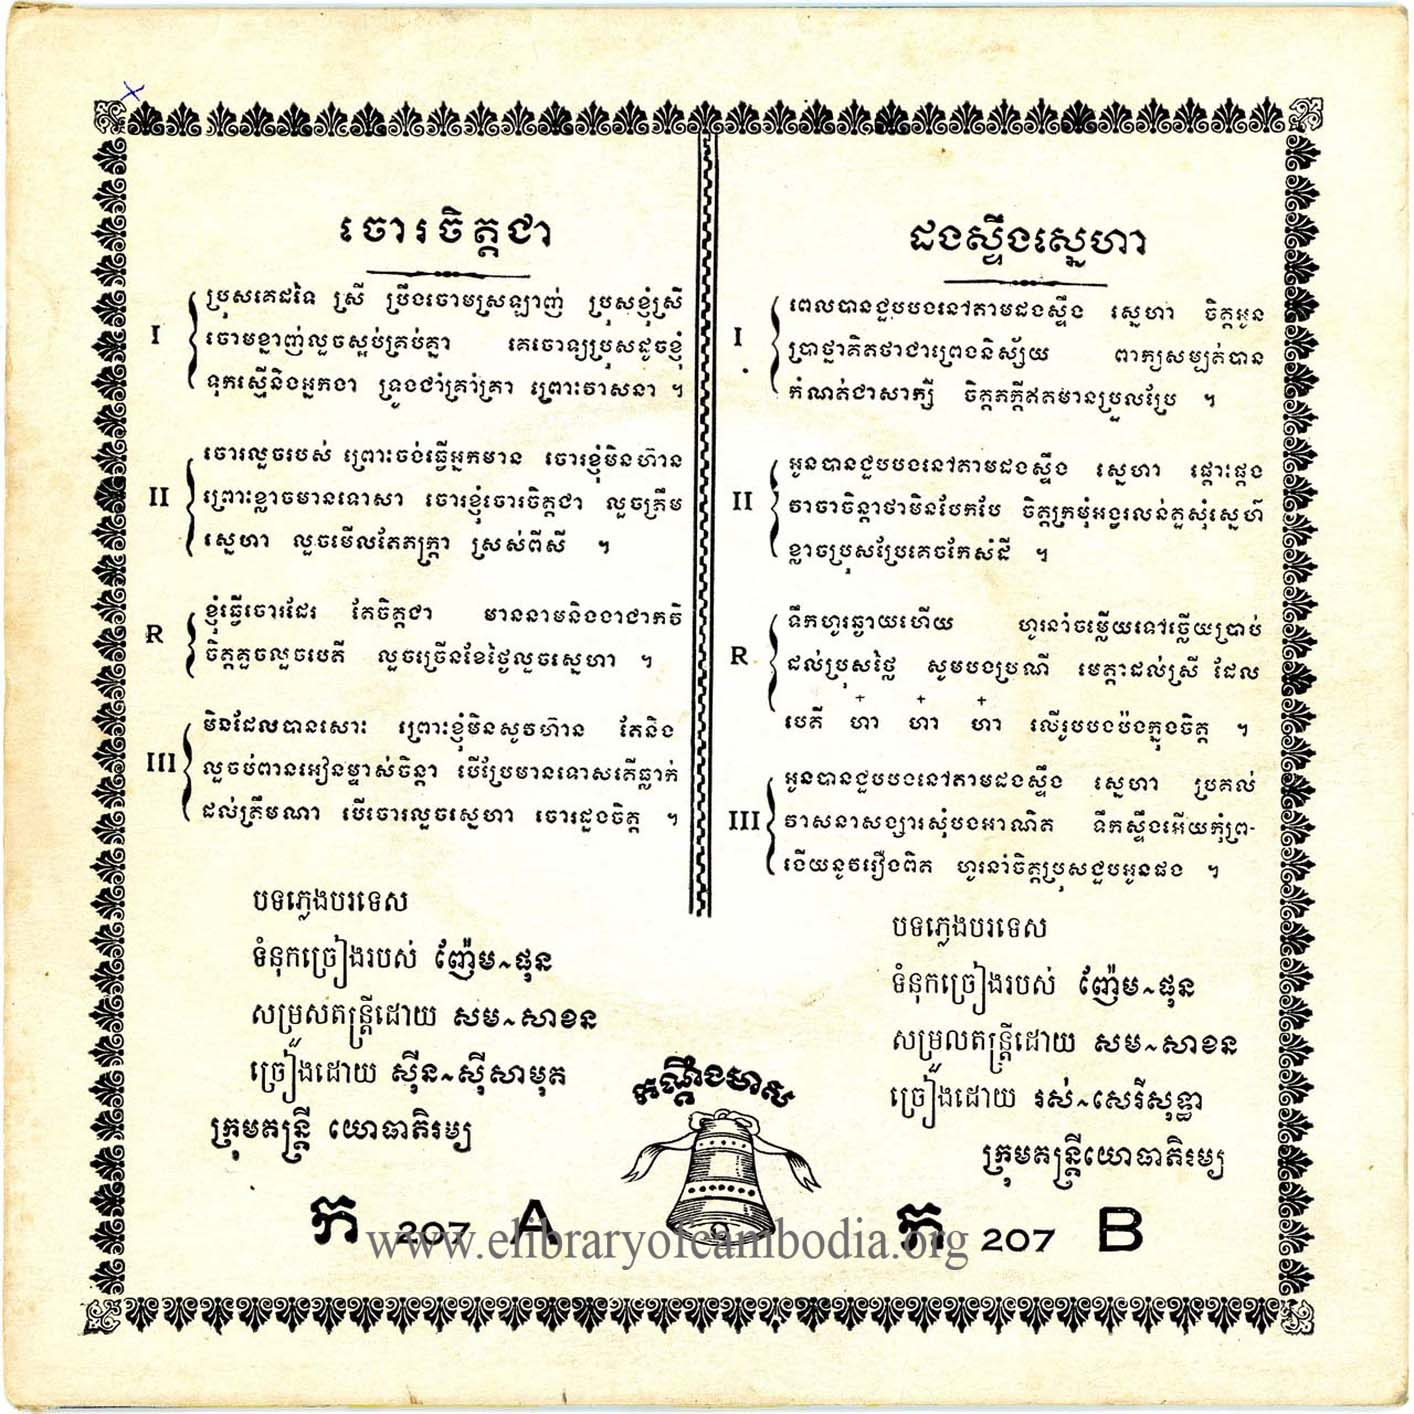 ចោរចិត្តជា
I
ប្រុសគេដទៃ ស្រី ប្រឹងចោមស្រឡាញ់ ប្រុសខ្ញុំស្រី
ចោមខ្នាញ់លួចស្អប់គ្រប់គ្នា គេចោទ្យប្រុសដូចខ្ញុំ
ទុកស្មើនិងអ្នកងា ទ្រូងជាំគ្រាំគ្រា ព្រោះវាសនា ។
II
ចោរលួចរបស់ ព្រោះចង់ធ្វើអ្នកមាន ចោរខ្ញុំមិនហ៊ាន
ព្រោះខ្លាចមានទោសា ចោរខ្ញុំចោរចិត្តជា លួចត្រឹម
ស្នេហា លួចមើលតែភក្ត្រា ស្រស់ពីសី ។
R
ខ្ញុំធ្វើចោរដែរ តែចិត្តជា មាននាមនិងងាជាកវី
ចិត្តគួចលួចបេតី លួចច្រើនខែថ្ងៃលួចស្នេហា ។
III
មិនដែលបានសោះ ព្រោះខ្ញុំមិនសូវហ៊ាន តែនិង
លួចប់ពានអៀនម្ចាស់ចិន្តា បើប្រែមានទោសតើធ្លាក់
ដល់ត្រឹមណា បើចោរលួចស្នេហា ចោរដួងចិត្ត ។
បទភ្លេងបរទេស
ទំនុកច្រៀងរបស់ ញ៉ែម~ផុន
សម្រួសតន្ត្រីដោយ សម~សាខន
ច្រៀងដោយ ស៊ីន~ស៊ីសាមុត
ក្រុមតន្ត្រី យោធាតិរម្យ
ក 207 A
ដងស្ទឹងស្នេហា
I
ពេលបានជួបបងនៅតាមដងស្ទឹង ស្នេហា ចិត្តអូន
ប្រាថ្នាគិតថាជាព្រេងនិស្ស័យ ពាក្យសម្បត់បាន
កំណត់ជាសាក្សី ចិត្តភក្ដីឥតមានប្រួលប្រែ ។
II
អូនបានជួបបងនៅតាមដងស្ទឹង ស្នេហា ផ្ដោះផ្ដង
វាចាចិន្តាថាមិនបែកបែ ចិត្តក្រមុំអង្វរលន់តួសុំស្នេហ៍
ខ្លាចប្រុសប្រែគេចកែសំដី ។
R
ទឹកហូរឆ្ងាយហើយ ហូរនាំចម្លើយទៅឆ្លើយប្រាប់
ដល់ប្រុសថ្លៃ សូមបងប្រណី មេត្តាដល់ស្រី ដែល
បេតី ហា៎ ហា៎ ហា៎ លើរូបបងប៉ងក្នុងចិត្ត ។
III
អូនបានជួបបងនៅតាមដងស្ទឹង ស្នេហា ប្រគល់
វាសនាសង្សារសុំបងអាណិត ទឹកស្ទឹងអើយកុំព្រ-
ងើយនូវរឿងពិត ហូរនាំចិត្តប្រុសជួបអូនផង ។
បទភ្លេងបរទេស
ទំនុកច្រៀងរបស់ ញ៉ែម~ផុន
សម្រួលតន្ត្រីដោយ សម~សាខន
ច្រៀងដោយ រស់~សេរីសុទ្ធា
ក្រុមតន្ត្រីយោធាតិរម្យ
ក 207 B
កណ្ដឹងមាស
www.elibraryofcambodia.org